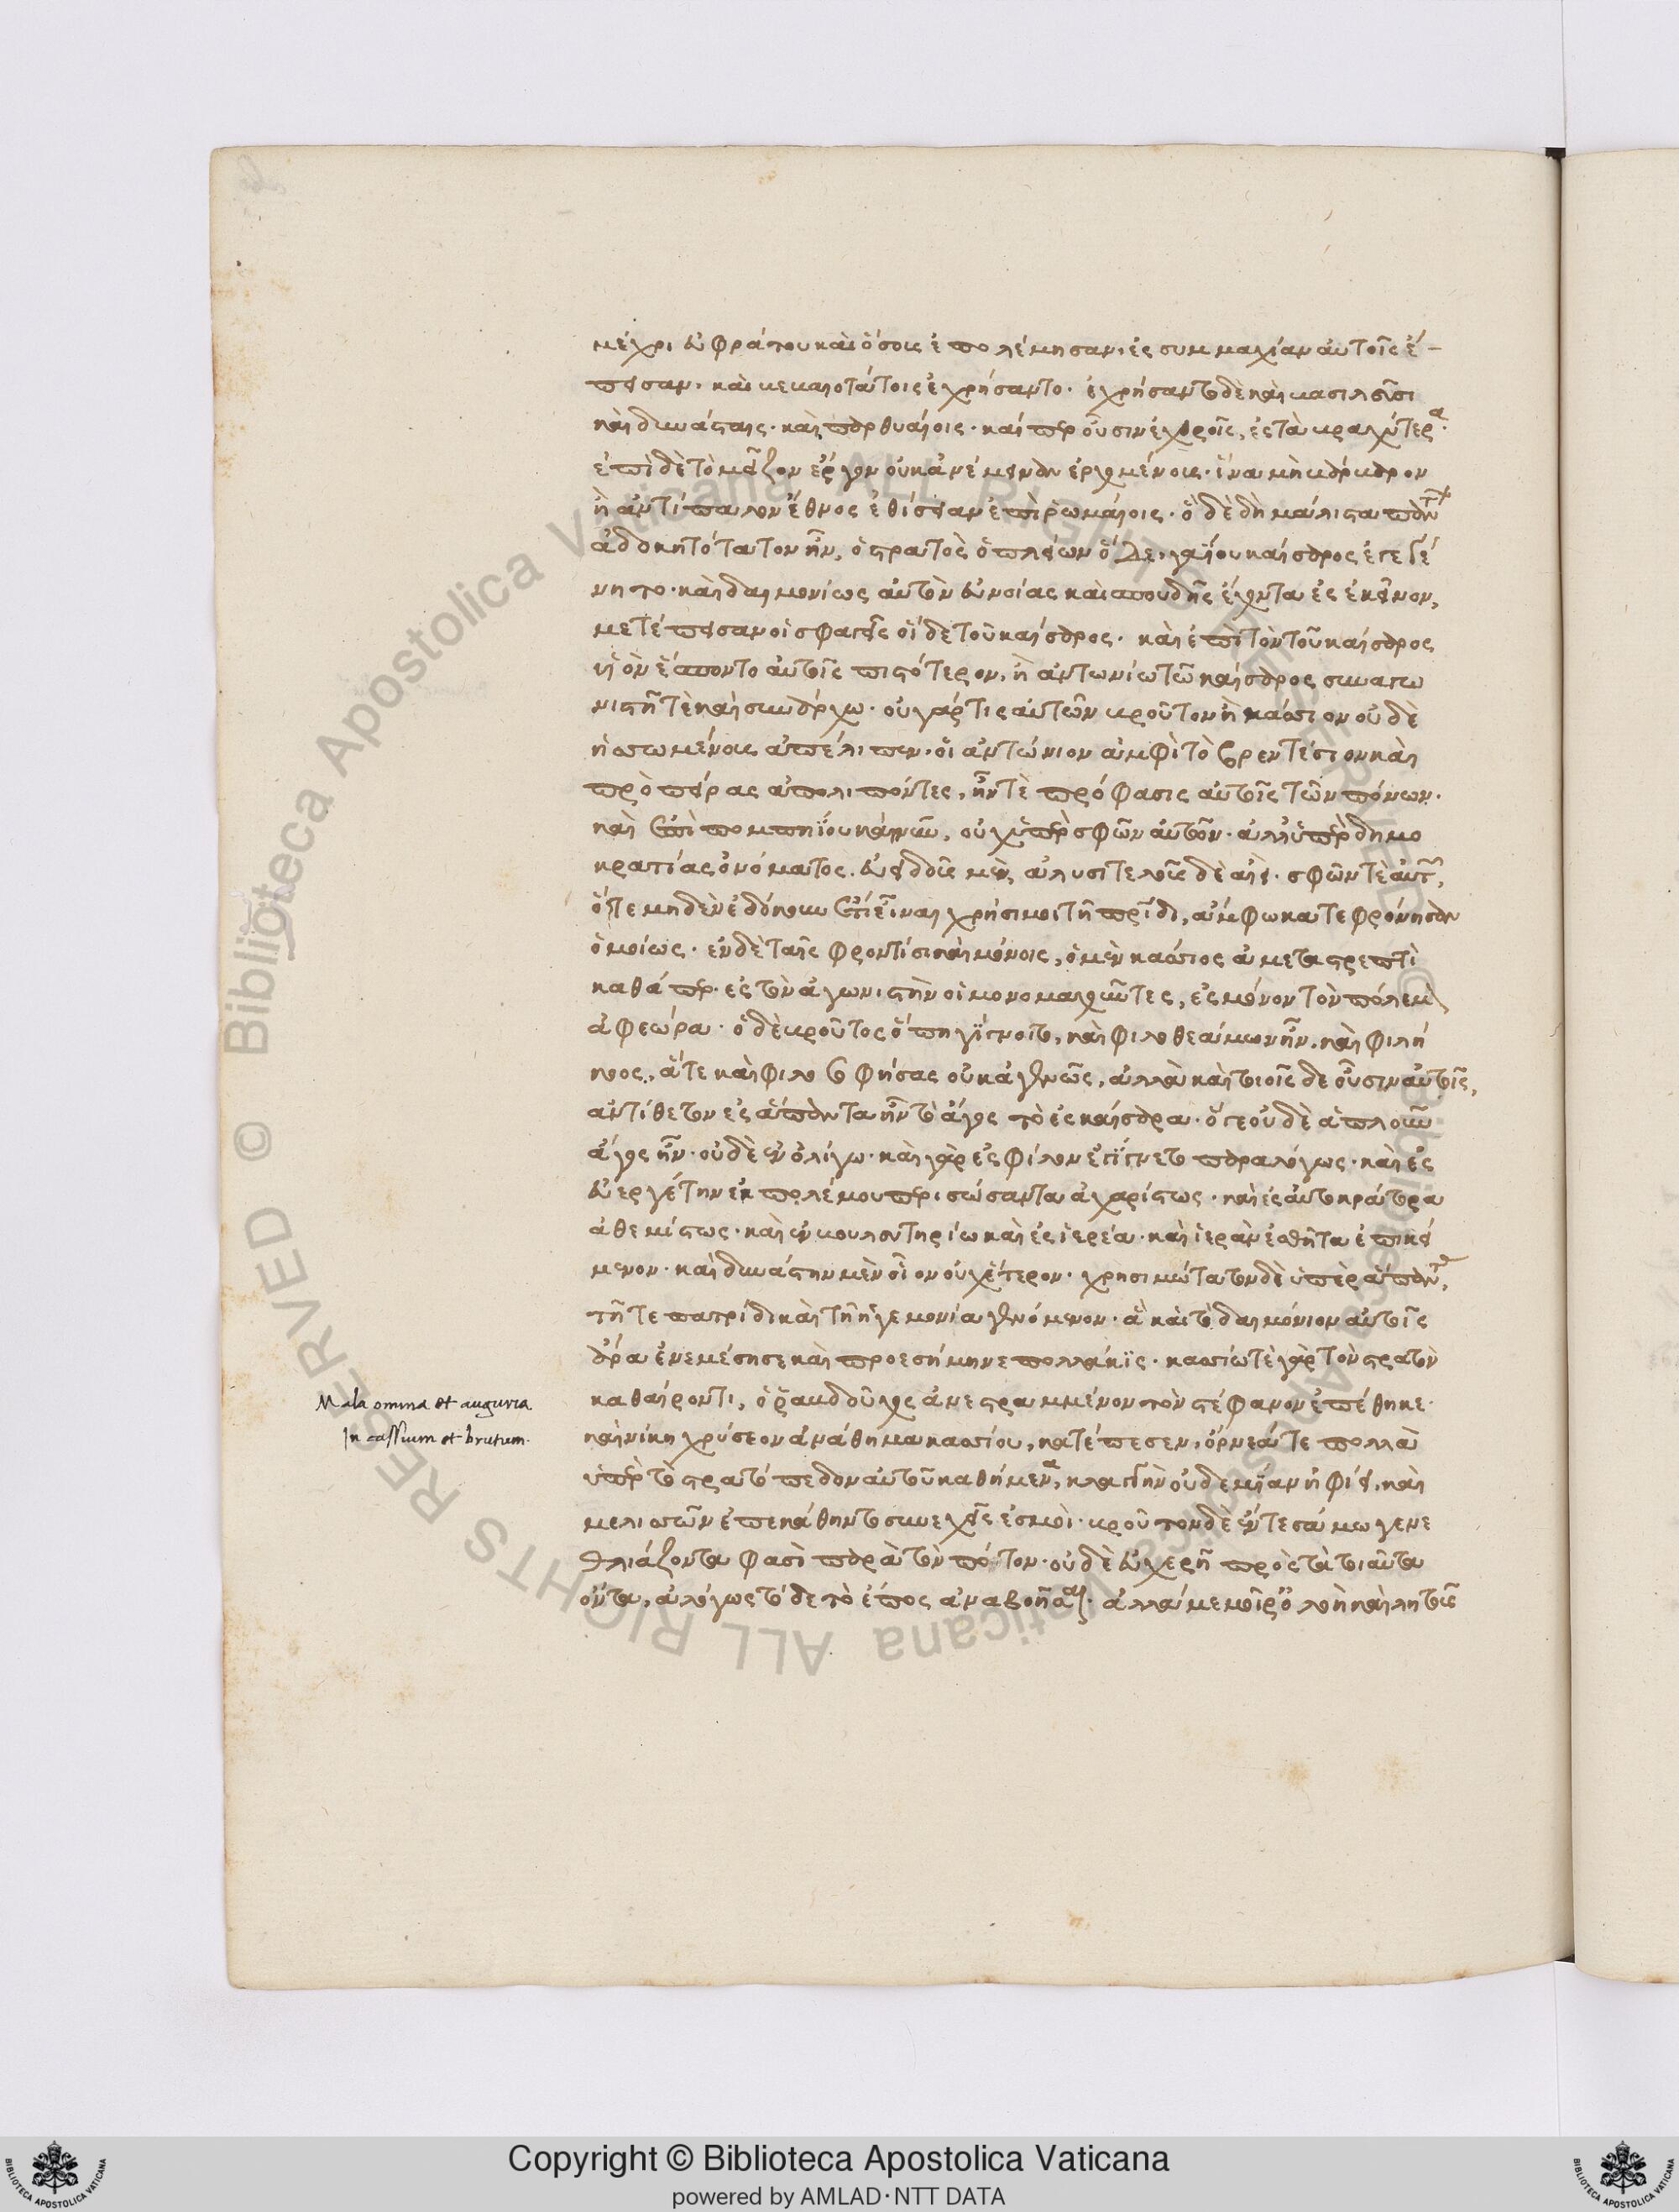 μέχρι εὐφράτου καὶ ὅσοις ἐπολέμησαν, ἐς συμμαχίαν αὐτοῖς ἔ-
πεισαν. καὶ βεβαιοτάτοις ἐχρήσαντο. ἐχρήσαντο δὲ καὶ βασιλεῦσι
καὶ δυνάσταις. καὶ παρθυαίοις. καίπερ οὖσιν ἐχθροῖς, ἐς τὰ βραχύτερα.
ἐπὶ δὲ τὸ μεῖζον ἔργον οὐκ ἀνέμειναν ἐρχομένους. ἵνα μὴ βάρβαρον
ἢ ἀντίπαλον ἔθνος ἐθίσειαν ἐπὶ ῥωμαίοις. ὃ δὲ δὴ μάλιστα πάντων
ἀδοκητότατον ἦν, ὁ στρατὸς ὁ πλείων ὅδε, γαΐου καίσαρος ἐγεγέ
νητο. καὶ δαιμονίως αὐτὸν εὐνοίας καὶ σπουδῆς ἔχοντα ἐς ἐκεῖνον,
μετέπεισαν οἱ σφαγεῖς οἵδε τοῦ καίσαρος. καὶ ἐπὶ τὸν τοῦ καίσαρος
υἱὸν ἕσποντο αὐτοῖς πιστότερον, ἢ ἀντωνίω τῶ καίσαρος συναγω
νιστῆ τὲ καὶ συνάρχω. οὐ γάρ τις αὐτῶν βροῦτον ἢ κάσσιον οὐδὲ
ἡσσωμένους ἀπέλιπεν. οἱ ἀντώνιον ἀμφὶ τὸ βρεντέσιον καὶ
πρὸ πείρας ἀπολιπόντες, ἦν τὲ πρόφασις αὐτοῖς τῶν πόνων.
καὶ ἐπὶ πομπηΐου καὶ νῦν, οὐχ ὑπὲρ σφῶν αὐτῶν. ἀλλ' ὑπὲρ δημο
κρατίας ὀνόματος. εὐειδοῦς μὲν, ἀλυσιτελοῦς δὲ αἰεί. σφῶν τὲ αὐτῶν,
ὅτε μηδὲν ἐδόκουν ἔτι εἶναι χρήσιμοι τῆ πατρίδι, ἄμφω κατεφρόνησαν
ὁμοίως. ἐν δὲ ταῖς φροντίσι καὶ πόνοις, ὁ μὲν κάσσιος ἀμεταστρεπτὶ
καθάπερ ἐς τὸν ἀγωνιστὴν οἱ μονομαχοῦντες, ἐς μόνον τὸν πόλεμον
ἀφεώρα. ὁ δὲ βροῦτος ὅπη γίγνοιτο, καὶ φιλοθεάμων ἦν. καὶ φιλή
κοος, ἅτε καὶ φιλοσοφήσας οὐκ ἀγεννῶς, ἀλλὰ καὶ τοιοῖσδε οὖσιν αὐτοῖς,
ἀντίθετον ἐς ἅπαντα ἦν τὸ ἄγος τὸ ἐς καίσαρα. ὅ γε οὐδὲ ἁπλοῦν
ἄγος ἦν. οὐδὲ ἐν ὀλίγω. καὶ γὰρ ἐς φίλον ἐγίγνετο παραλόγως. καὶ ἐς
εὐεργέτην ἐκ πολέμου περισώσαντα ἀχαρίστως. καὶ ἐς αὐτοκράτορα
ἀθεμίστως. καὶ ἐν βουλευτηρίω καὶ ἐς ἱερέα. καὶ ἱερὰν ἐσθῆτα ἐπικεί
μενον. καὶ δυνάστην μὲν οἷον οὐχ ἕτερον. χρησιμώτατον δὲ ὑπὲρ ἅπαντας,
τῆ τε πατρίδι καὶ τῆ ἡγεμονία γενόμενον. ἃ καὶ τὸ δαιμόνιον αὐτοῖς
ἄρα ἐνεμέσησε καὶ προεσήμηνε πολλάκις. κασσίω τὲ γὰρ τὸν στρατὸν
καθαίροντι, ὁ ῥαβδοῦχος ἀνεστραμμένον τὸν στέφανον ἐπέθηκε.
καὶ νίκη χρύσεον ἀνάθημα κασσίου, κατέπεσεν, ὄρνεά τε πολλὰ
ὑπὲρ τὸ στρατόπεδον αὐτοῦ καθήμενα, κλαγγὴν οὐδεμίαν ἠφίει. καὶ
μελισσῶν ἐπεκάθηντο συνεχεῖς ἐσμοί. βροῦτον δὲ ἔν τε σάμω γενε
θλιάζοντα φασὶ παρὰ τὸν πότον. οὐδὲ εὐχερῆ πρὸς τὰ τοιαῦτα
ὄντα, ἀλόγως τόδε τὸ ἔπος ἀναβοῆσαι. ἀλλά με μοῖρ' ὀλοὴ καὶ λητοῦς
Mala omina et auguria
In cassium et brutum.
Copyright © Biblioteca Apostolica Vaticana
powered by AMLAD·NTT DATA